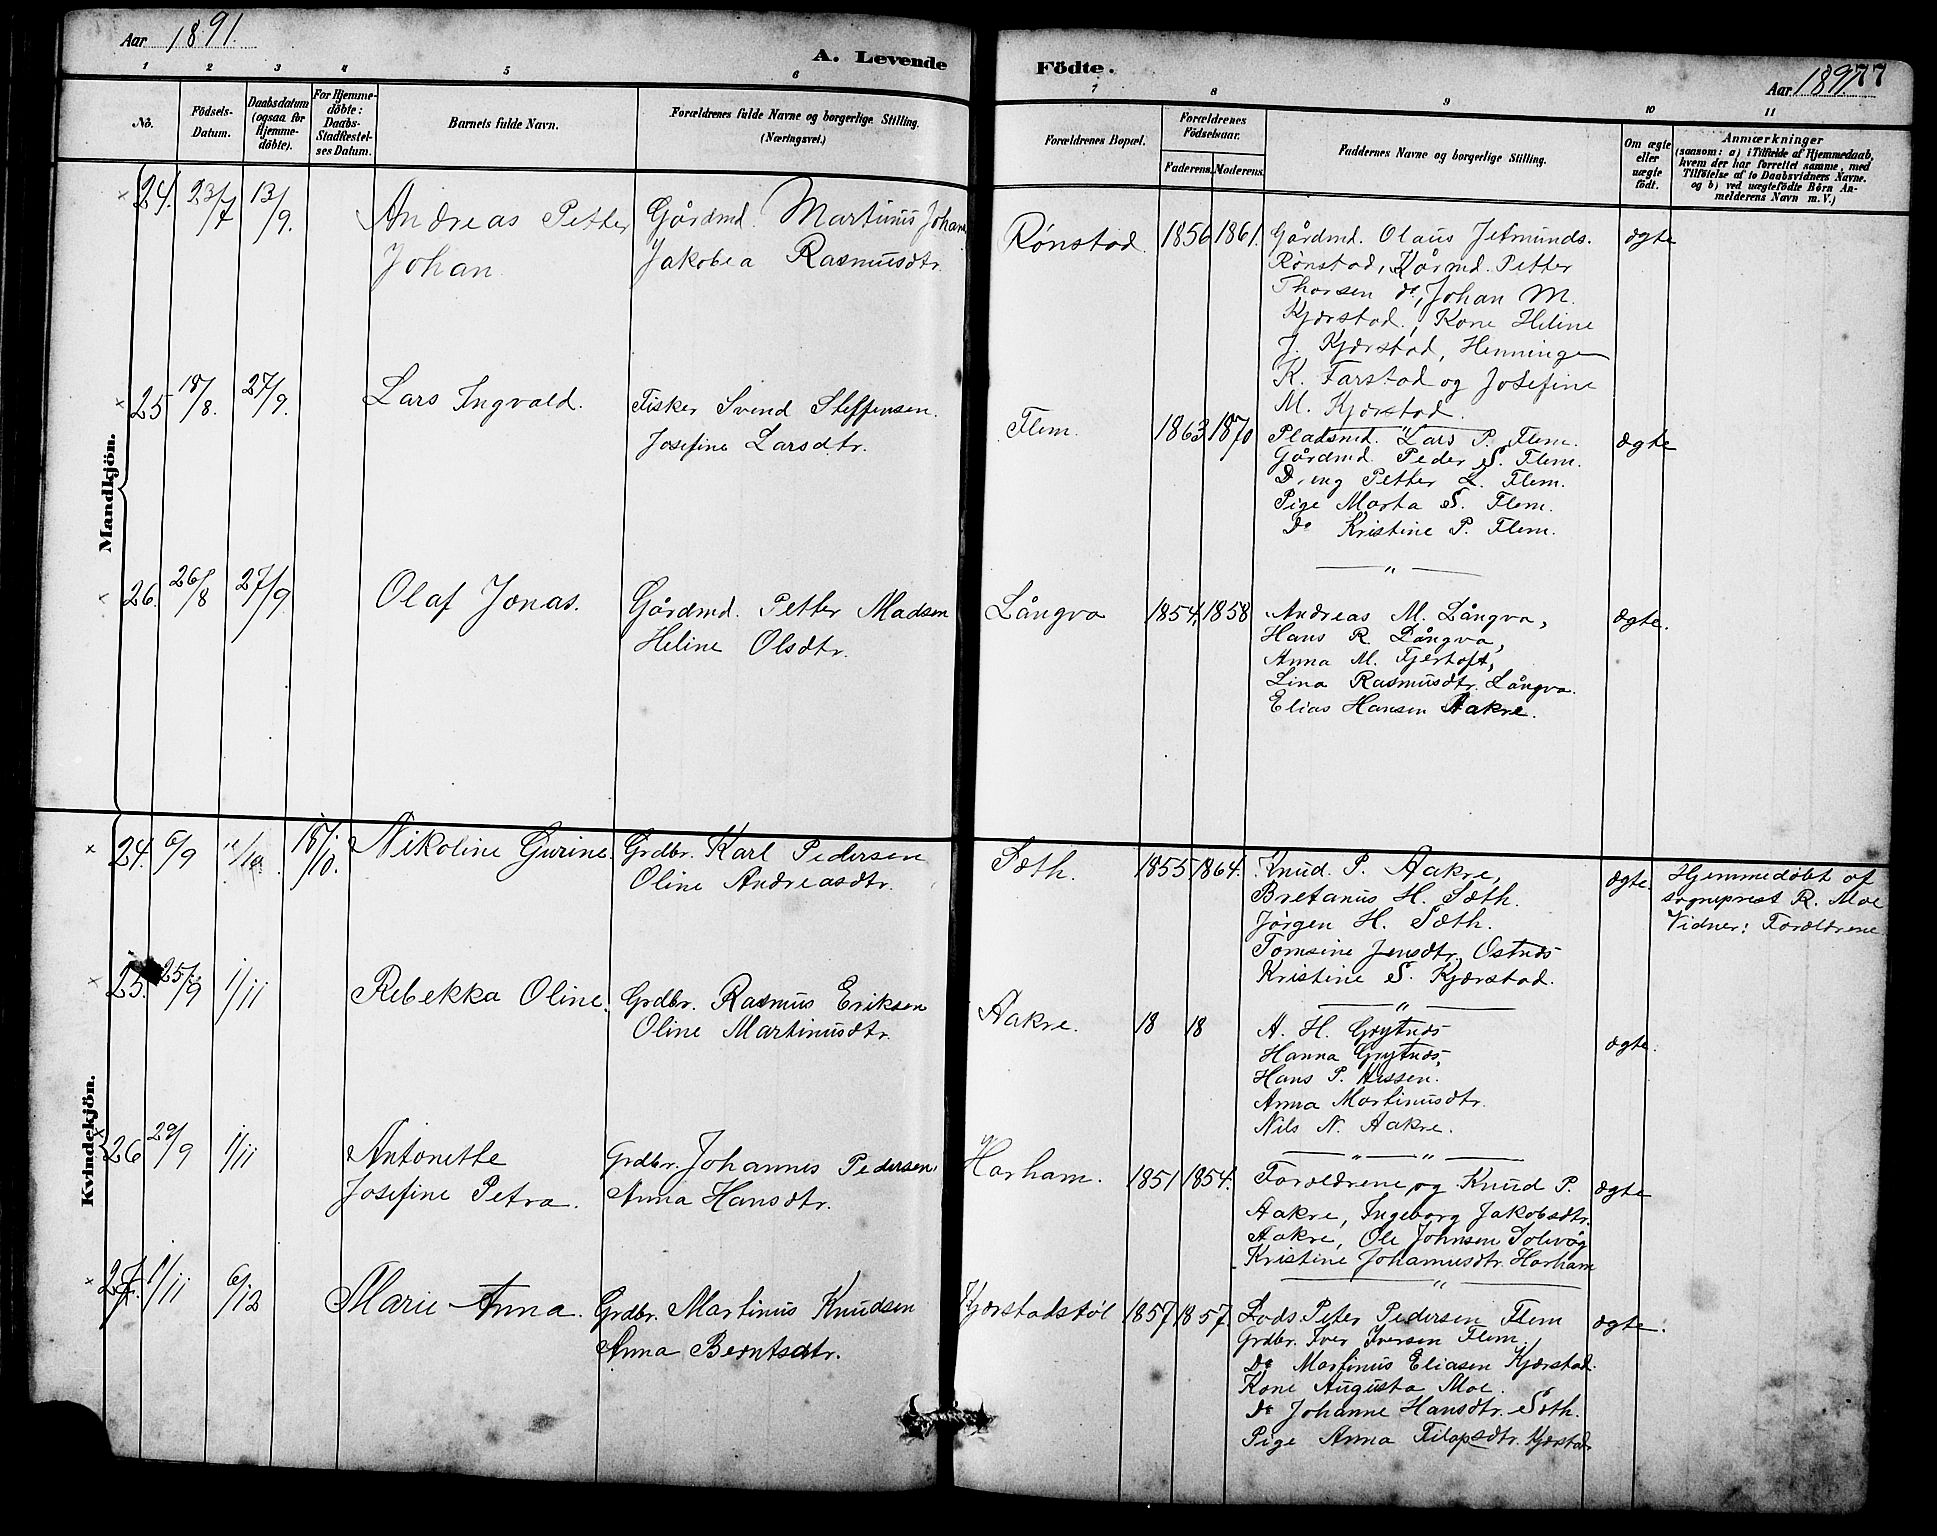 Aar 1891.
A. Levende Födte.
Aar 1891
77
1 2 3 4 5 6 7 8 9 10 11
No.
Födsels-Datum.
Daabsdatum (ogsaa for Hjemmedöbte).
For Hjemmedöbte: Daabs-Stadfæstelses Datum.
Barnets fulde Navn.
Forældrenes fulde Navne og borgerlige Stilling. (Næringsvei.)
Forældrenes Bopæl.
Forældrenes Födselsaar.
Faderens. Moderens.
Faddernes Navne og borgerlige Stilling.
Om ægte eller uægte født.
Anmærkninger
(saasom: a) i Tilfælde af Hjemmedaab, hvem der har forrettet samme, med Tilföielse af to Daabsvidners Navne. og b) ved uægtefödte Börn Anmelderens Navn m. V.)
Mandkjön.
24. 23/7 13/9.
Andreas Petter
Johan
Gårdmd. Martinus Johans
Jakobea Rasmusdtr.
Rønstad 1856 1861.
Gårdmd. Olaus Jetmunds.
Rønstad, Kårmd. Petter
Thorsen do, Johan M.
Kjærstad, Kone Heline
J. Kjærstad, Henninge
K. Farstad og Josefine
M. Kjærstad.
ægte
25 18/8. 27/9.
Lars Ingvald.
Fisker Svend Steffensen.
Josefine Larsdtr.
Flem. 1863 1870
Pladsmd. Lars P. Flem.
Gårdmd. Peder S. Flem.
Dreng Petter L. Flem.
Pige Marta S. Flem.
Do Kristine P. Flem.
ægte
26. 26/8 27/9.
Olaf Jonas.
Gårdmd. Petter Madsen
Heline Olsdtr.
Långva 1854. 1858
Andreas M. Långva,
Hans R. Långva,
Anna M. Fjertoft,
Lina Rasmusdtr. Långva.
Elias Hansen Aakre.
ægte.
Kvindekjön.
24. 6/9 11/10. 18/10.
Nikoline Gurine.
Grdbr. Karl Pedersen
Oline Andreasdtr.
Sæth. 1855 1864.
Knud. P. Aakre,
Bretanus H. Sæth.
Jørgen H. Sæth.
Tomsine Jensdtr. Ostnes
Kristine S. Kjærstad.
ægte.
Hjemmedøbt af
sogneprest R. Moe
Vidner: Forældrene
25. 25/9 1/11
Rebekka Oline.
Grdbr. Rasmus Eriksen
Oline Martinusdtr.
Aakre. 18 18
A. H. Grytnes
Hanna Grytnes,
Hans P. Nissen.
Anna Martinusdtr.
Nils N. Aakre.
ægte.
26 29/9 1/11
Antonette
Josefine Petra.
Grdbr. Johannes Pedersen.
Anna Hansdtr.
Harham. 1851 1854.
Forældrene og Knud P.
Aakre, Ingeborg Jakobsdtr.
Aakre, Ole Johnsen Solevåg
Kristine Johannesdtr. Harham
ægte
27. 1/11 6/12
Marie Anna.
Grdbr. Martinus Knudsen
Anna Berntsdtr.
Kjærstadstøl 1857 1857.
Lods Peter Pedersen Flem
Grdbr. Iver Iversen Flem.
Do Martinus Eliasen Kjærstad.
Kone Augusta Moe.
Do Johanne Hansdtr. Sæth.
Pige Anna Filapsdtr. Kjærstad
ægte.